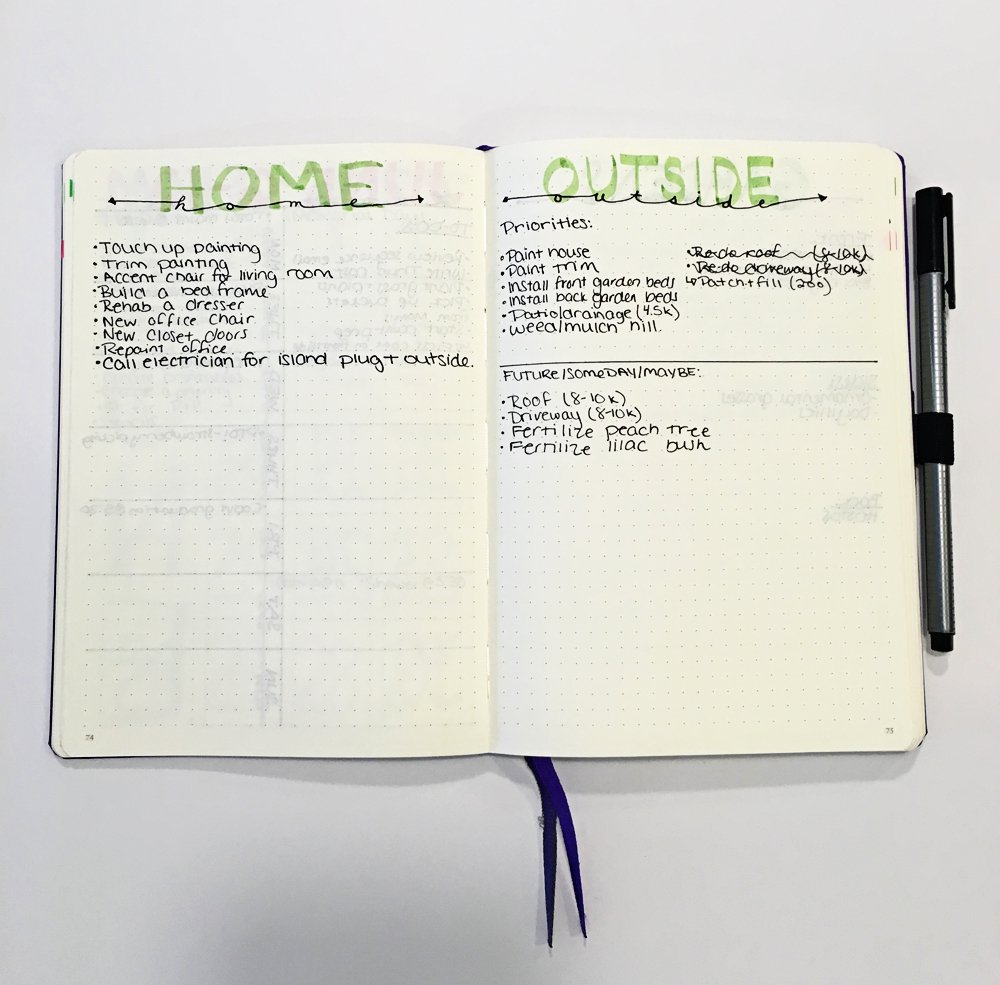 HOME
home
• Touch up painting
• Trim painting
• Accent chair for living room
• Build a bed frame
• Rehab a dresser
• New office chair
• New closet doors
• Repaint office
• Call electrician for island plug + outside.
74
OUTSIDE
outside
Priorities:
• Paint house
• Paint trim
• Install front garden beds
• Install back garden beds
• Patio/drainage (4.5k)
• Weed/mulch hill.
• Re do roof (8-10k)
• Re do driveway (8-10k)
↳ Patch + fill (200)
FUTURE/SOMEDAY/MAYBE:
• Roof (8-10k)
• Driveway (8-10k)
• Fertilize peach tree
• Fertilize lilac bush
75